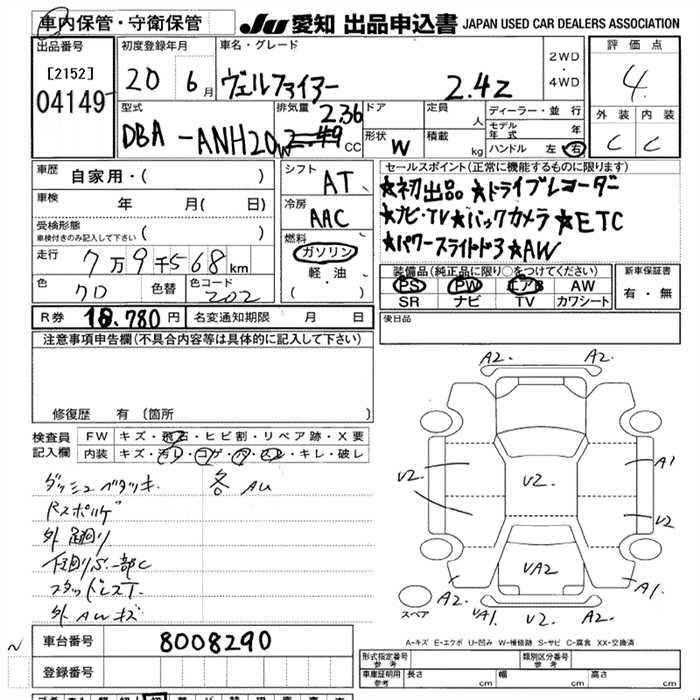 車内保管・守衛保管
JU 愛知 出品申込書 JAPAN USED CAR DEALERS ASSOCIATION
出品番号
[2152]
04149
初度登録年月
20 6月
車名・グレード
ヴェルファイアー 2.4Z
2WD
・
4WD
評価点
4
外装 内装
C C
型式
DBA -ANH20W
排気量 2.36
CC
ドア
形状 W
定員 人
積載 kg
ディーラー・並行
モデル年式 年
ハンドル 左 右
車歴 自家用・( )
車検 年 月( 日)
受検形態
車検付きのみ記入して下さい ( )
走行 7万9千568km
色 クロ 色替 色コード 202
シフト AT
冷房 AAC
燃料
ガソリン
軽・油
( )
セールスポイント(正常に機能するものに限ります)
★初出品 ★ドライブレコーダー
★ナビ・TV★バックカメラ★ETC
★パワースライドドア★AW
装備品(純正品に限り○をつけてください)
PS PW エアB AW
SR ナビ TV カワシート
新車保証書
有・無
R券 18.780円 名変通知期限 月 日
後日品
注意事項申告欄(不具合内容等は具体的に記入して下さい)
修復歴 有 (箇所
検査員
記入欄
FW キズ・飛石・ヒビ割・リペア跡・X要
内装 キズ・汚レ・コゲ・ア・スレ・キレ・破レ
各AU
外 足廻り
下廻りS.一部C
スタッドレスT.
外 AWキズ
A2. A2.
U2. U2. A1
U2
UA2
A2. UA1. U2 A2. A1.
スペア
A-キズ E-エクボ U-凹み W-補修跡 S-サビ C-腐食 XX-交換済
車台番号 8008290
登録番号
型式指定番号
参考
類別区分番号
参考
車庫証明用
参考
長さ cm 幅 cm 高さ cm